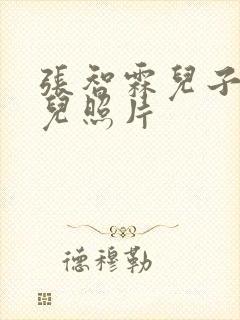 張智霖兒子
兒照片
德穆勒